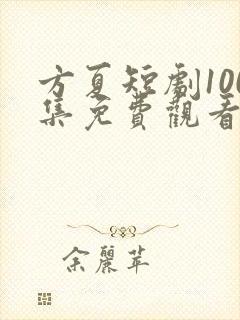 方夏短劇100
集免費觀看
余麗萍